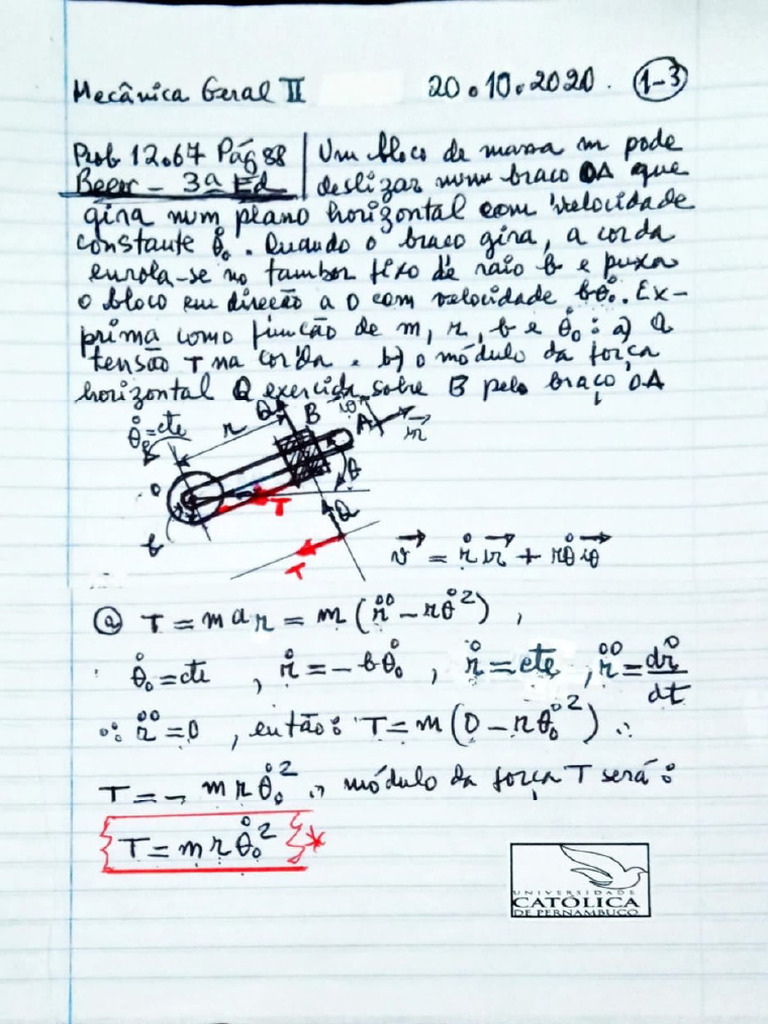 Mecânica Geral II 20.10.2020. 1-3
Prob 12.67 Pág 88 Um bloco de massa m pode
Beer - 3ª Ed deslizar num braço OA que
gira num plano horizontal com velocidade
constante θ̇₀. Quando o braço gira, a corda
enrola-se no tambor fixo de raio b e puxa
o bloco em direção a O com velocidade bθ̇₀. Ex-
prima como função de m, r, b e θ̇₀: a) A
tensão T na corda. b) o módulo da força
horizontal Q exercida sobre B pelo braço OA
θ̇₀=cte r Q B iθ A ir
O θ T Q
b
T
v = ṙ ir + rθ̇ iθ
a) T = m a r = m (r̈ - rθ̇²),
θ̇₀=cte, ṙ = -bθ̇₀, ṙ = cte, r̈ = dṙ/dt
∴ r̈ = 0, então: T = m (0 - rθ̇₀²) ∴
T = - m r θ̇₀² ∴ módulo da força T será:
T = m r θ̇₀² *
UNIVERSIDADE
CATÓLICA
DE PERNAMBUCO